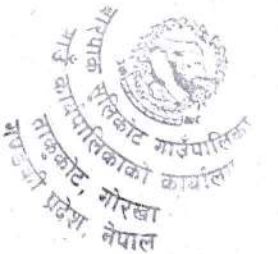 बारपाक सुलिकोट गाउँपालिका
गाउँ कार्यपालिकाको कार्यालय
ताकुकोट, गोरखा
गण्डकी प्रदेश, नेपाल